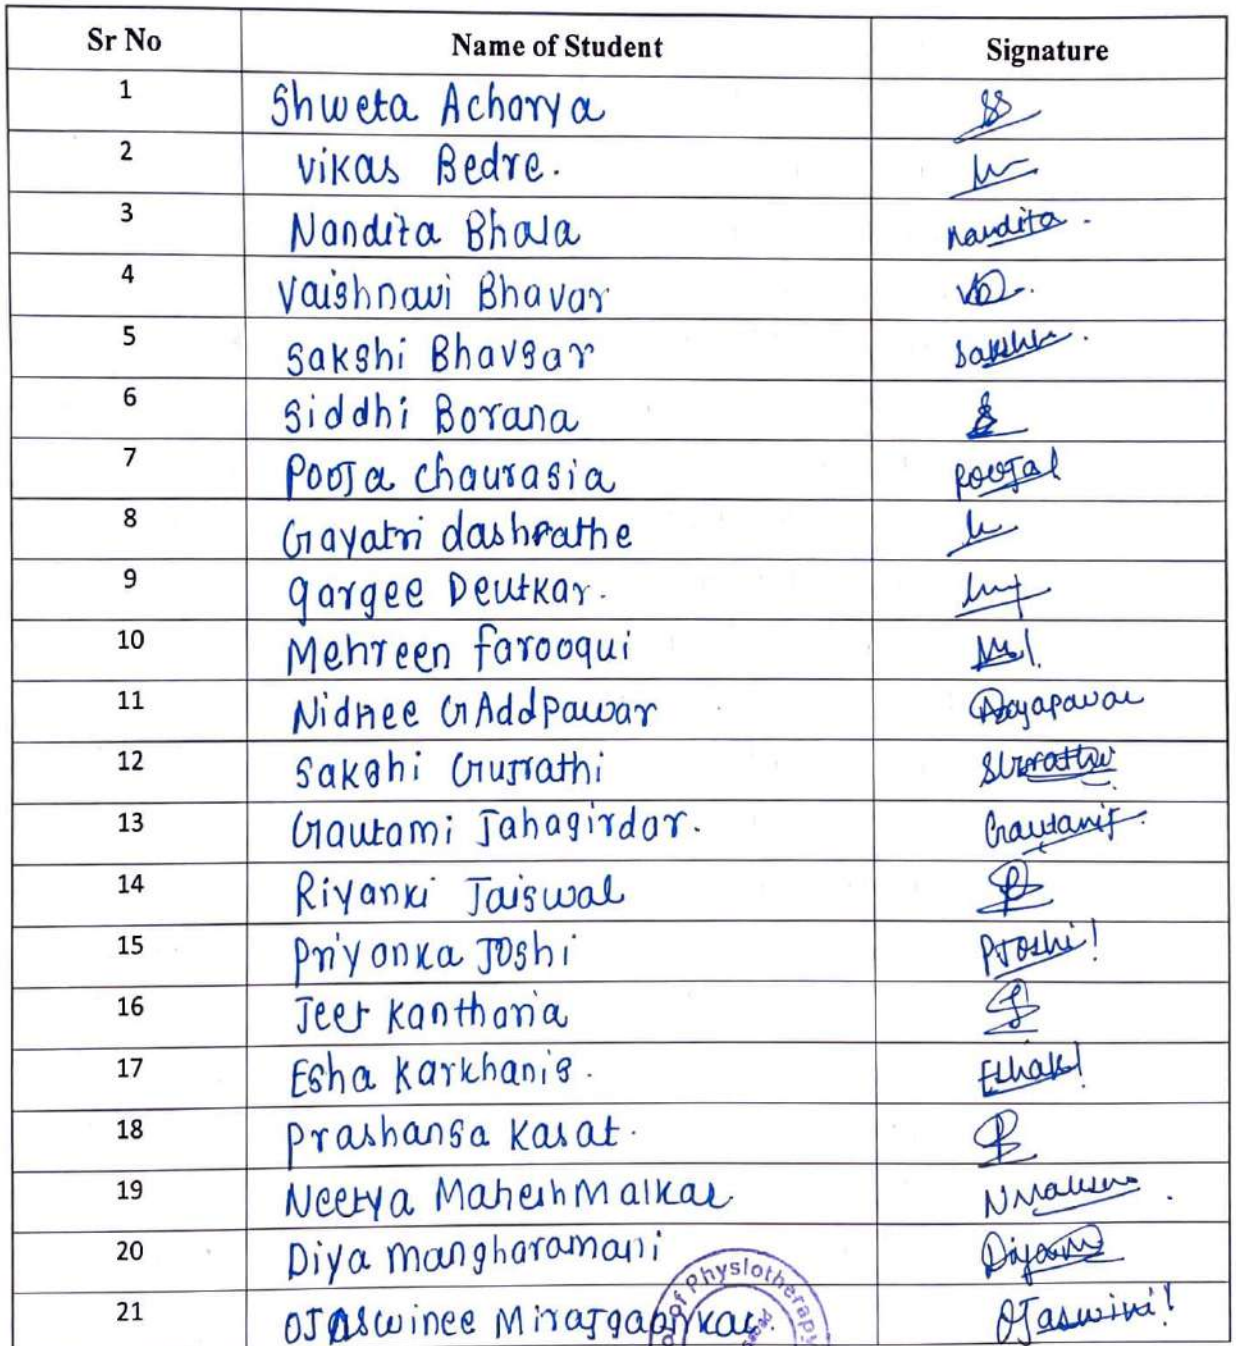 Sr No Name of Student Signature
1 Shweta Acharya
2 Vikas Bedre.
3 Nandita Bhala Nandita.
4 Vaishnavi Bhavar
5 Sakshi Bhavsar Sakshi.
6 Siddhi Borana
7 Pooja chaurasia
8 Gayatri dashrathe
9 gargee Deutkar.
10 Mehreen farooqui
11 Nidhee GAddpawar
12 Sakshi Gurrathi
13 Gautami Jahagirdar.
14 Riyanki Jaiswal
15 Priyanka Joshi PJoshi!
16 Jeet Kantharia
17 Esha Karkhanis. EshaK!
18 Prashansa Kasat.
19 Neetya Mahesh Malkar
20 Diya Mangharamani
21 Ojaswinee Ojaswini!
of Physiotherapy